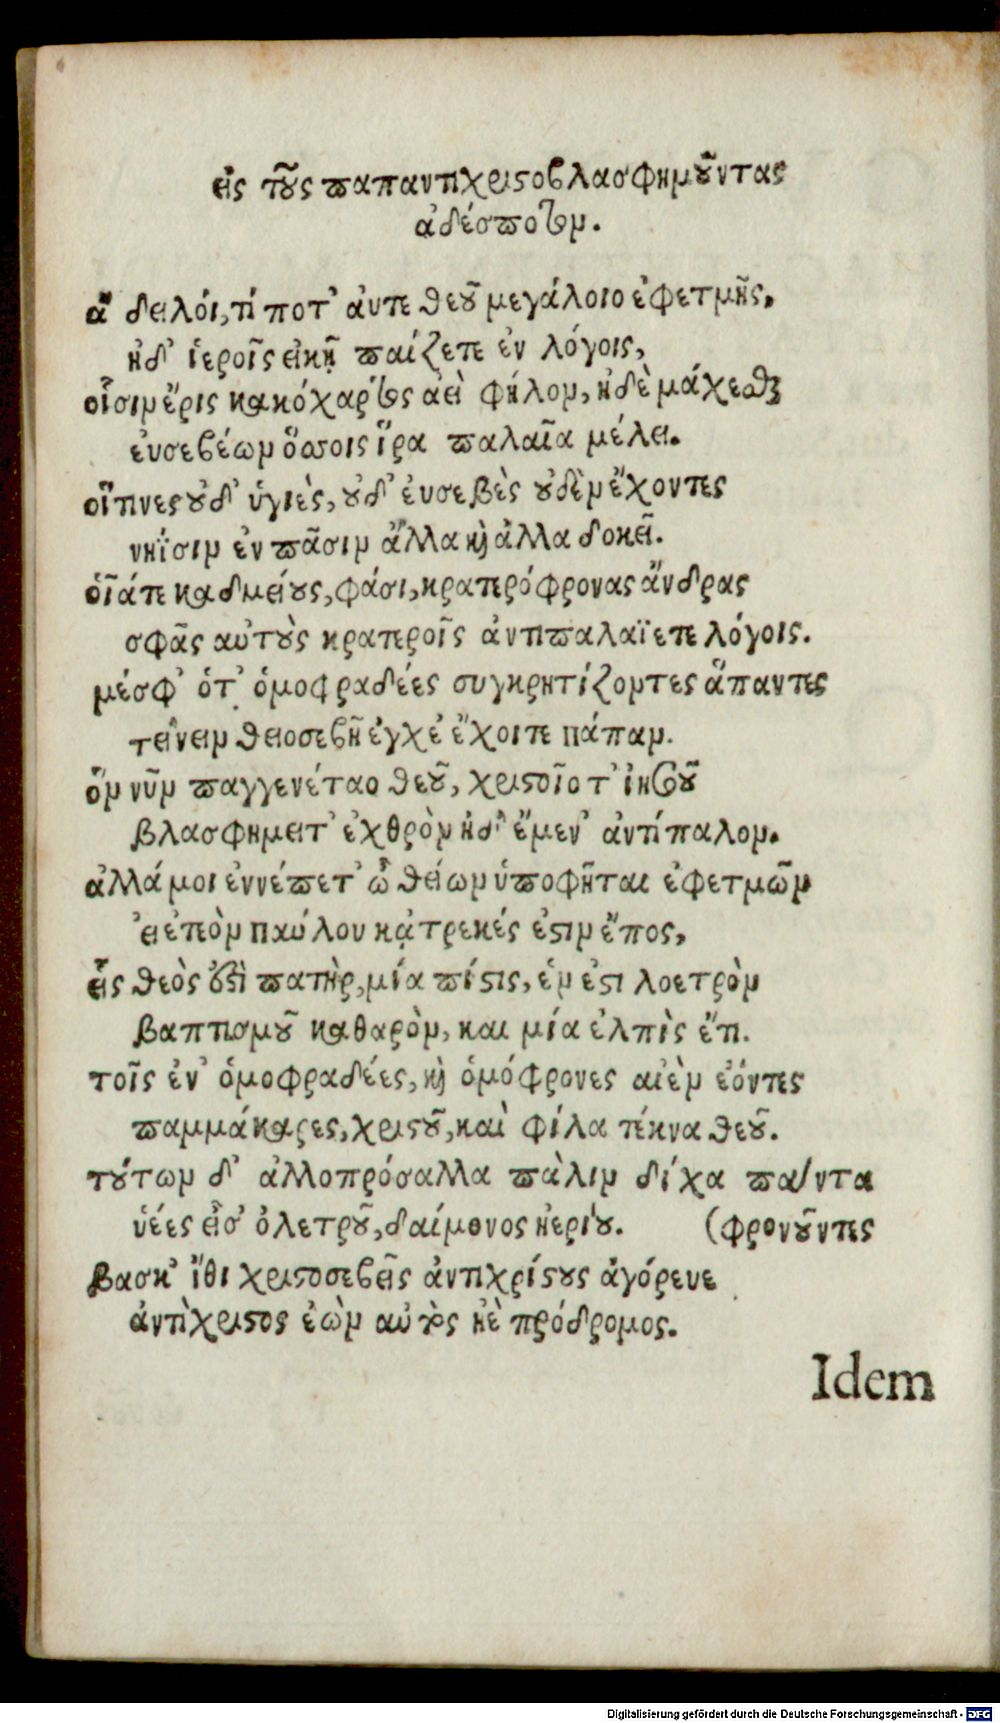 εἰς τοὺς παπαντιχριστοβλασφημοῦντας
ἀδέσποτομ.
ἆ δειλόι, τί ποτ' ἀυτε θεοῦ μεγάλοιο ἐφετμῆς,
ἠδ' ἱεροῖς εἰκῇ παίζετε ἐν λόγοις,
οἷσιμ ἔρις κακόχαρτος ἀεὶ φήλομ, ἠδὲ μάχεσθαι
ἐυσεβέωμ ὅσοις ἵρα παλαῖα μέλει.
οἵτινες οὐδ' ὑγιὲς, οὐδ' ἐυσεβὲς οὐδὲμ ἔχοντες
νηΐσιμ ἐν πᾶσιμ ἄλλα καὶ ἀλλα δοκεῖ.
οἷάτε καδμείους, φάσι, κρατερόφρονας ἄνδρας
σφᾶς αὐτοὺς κρατεροῖς ἀντιπαλαΐετε λόγοις.
μέσφ' ὁτ' ὁμοφραδέες συγκρητίζομτες ἅπαντες
τείνειμ θειοσεβῆ ἐγχέ ἔχοιτε πάπαμ.
ὅμ νῦμ παγγενέταο θεοῦ, χριστοῖο τ' ἰησοῦ
βλασφημειτ' ἐχθρὸμ ἠδ' ἔμεν' ἀντίπαλομ.
ἀλλά μοι ἐννέπετ' ὦ θείωμ ὑποφῆται ἐφετμῶμ
εἰ ἐτεὸμ παύλου κἀτρεκές ἐστιμ ἔπος,
εἷς θεὸς ἐστὶ πατὴρ, μία πίστις, ἑμ ἐστι λοετρὸμ
βαπτισμοῦ καθαρὸμ, και μία ἐλπὶς ἔτι.
τοῖς ἐν' ὁμοφραδέες, καὶ ὁμόφρονες αἰὲμ ἐόντες
παμμάκαρες, χριστοῦ, καὶ φίλα τέκνα θεοῦ.
τούτωμ δ' ἀλλοπρόσαλλα πὰλιμ δίχα πάντα
ὑέες εἶσ' ὀλετροῦ, δαίμονος ἠερίου. (φρονοῦντες
βασκ' ἴθι χριστοσεβεῖς ἀντιχρίστους ἀγόρευε
ἀντὶχριστος ἐὼμ αὐτὸς ἠὲ πρόδρομος.
Idem
Digitalisierung gefördert durch die Deutsche Forschungsgemeinschaft - DFG